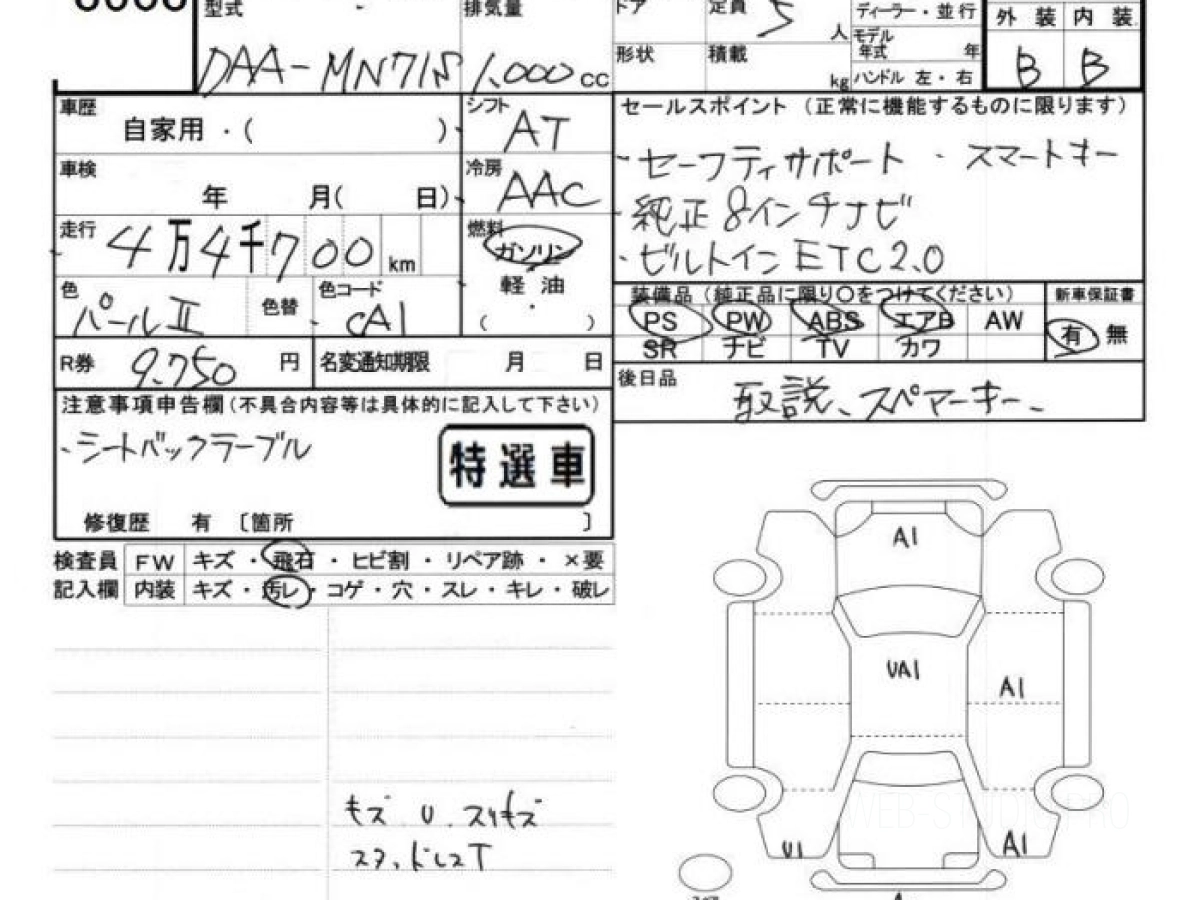 型式 排気量 ドア 定員 5 人 ディーラー・並行 外装 内装
DAA-MN71S 1,000 cc 形状 積載 kg モデル年式 年 B B
ハンドル 左・右
車歴 自家用・( ) シフト AT セールスポイント (正常に機能するものに限ります)
車検 年 月( 日) 冷房 AAC ・セーフティサポート ・スマートキー
・純正8インチナビ
走行 4万4千700 km 燃料 ガソリン ・ビルトインETC2.0
軽油
( )
色 パールⅡ 色替 色コード CA1 装備品 (純正品に限り〇をつけてください) 新車保証書
PS PW ABS エアB AW 有 無
R券 9.750 円 名変通知期限 月 日 SR ナビ TV カワ
後日品 取説、スペアーキー、
注意事項申告欄(不具合内容等は具体的に記入して下さい)
・シートバックテーブル
特選車
修復歴 有 〔箇所 〕
検査員 FW キズ・飛石・ヒビ割・リペア跡・×要
記入欄 内装 キズ・汚レ・コゲ・穴・スレ・キレ・破レ
A1
UA1
A1
キズ U スリキズ
U1 A1
WEB-STUDIO PRO